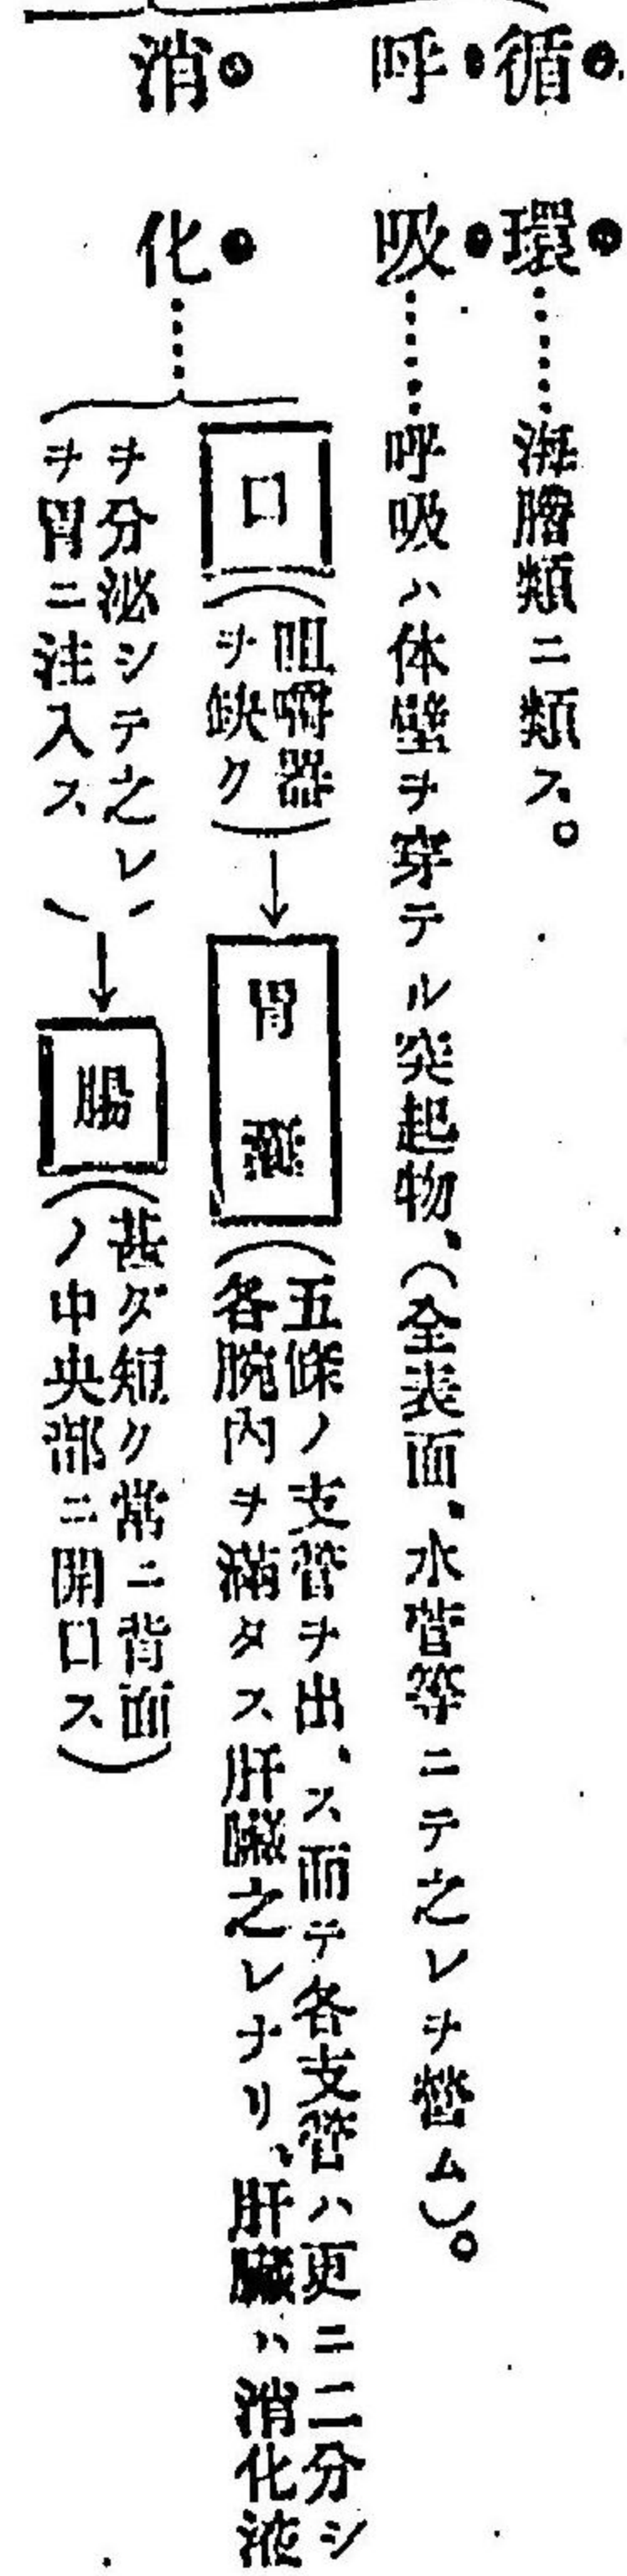 循環……海膽類ニ類ス。
呼吸……呼吸ハ体壁ヲ穿テル突起物、(全表面、水管等ニテ之レヲ營ム)。
消化……
口(咀嚼器
ヲ缺ク)→胃
(五條ノ支管ヲ出、ス而テ各支管ハ更ニ二分シ
各腕內ヲ滿タス肝臟之レナリ、肝臟ハ消化液
ヲ分泌シテ之レ
ヲ胃ニ注入ス)→腸(甚ダ短ク常ニ背面
ノ中央部ニ開口ス)